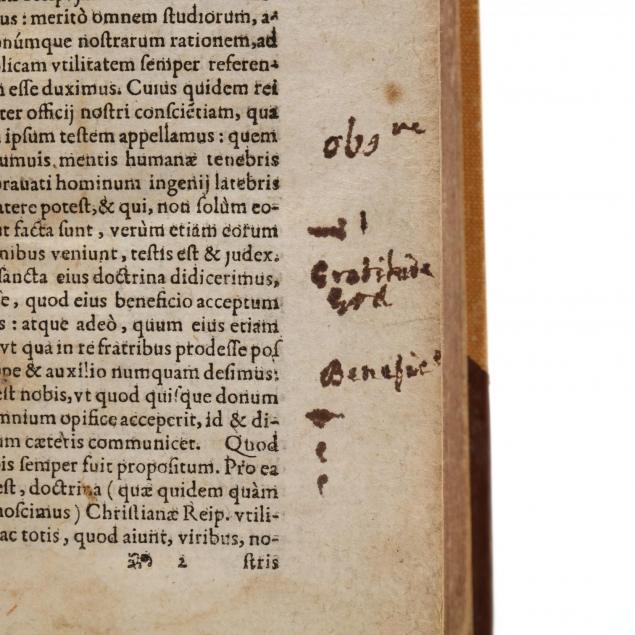 us : meritò omnem ſtudiorum, a-
onúmque noſtrarum rationem, ad
licam vtilitatem ſemper referen-
eſſe duximus. Cuius quidem rei
ter officij noſtri conſciētiam, qua
ipſum teſtem appellamus : quem
umuis mentis humanæ tenebris
prauati hominum ingenij latebris
atere poteſt, & qui, non ſolùm eo-
facta ſunt, verùm etiam eorum
nibus veniunt, teſtis eſt & judex.
ſancta eius doctrina didicerimus,
e, quod eius beneficio acceptum
s : atque adeò, quum eius etiam
vt qua in re fratribus prodeſſe poſ
pe & auxilio numquam deſimus:
eſt nobis, vt quod quiſque donum
mnium opifice acceperit, id & di-
um cæteris communicet. Quod
is ſemper fuit propoſitum. Pro ea
eſt, doctrina ( quæ quidem quàm
noſcimus ) Chriſtianæ Reip. vtili-
ac totis, quod aiunt, viribus, no-
2 ſtris
obs ve
Gratitude
God